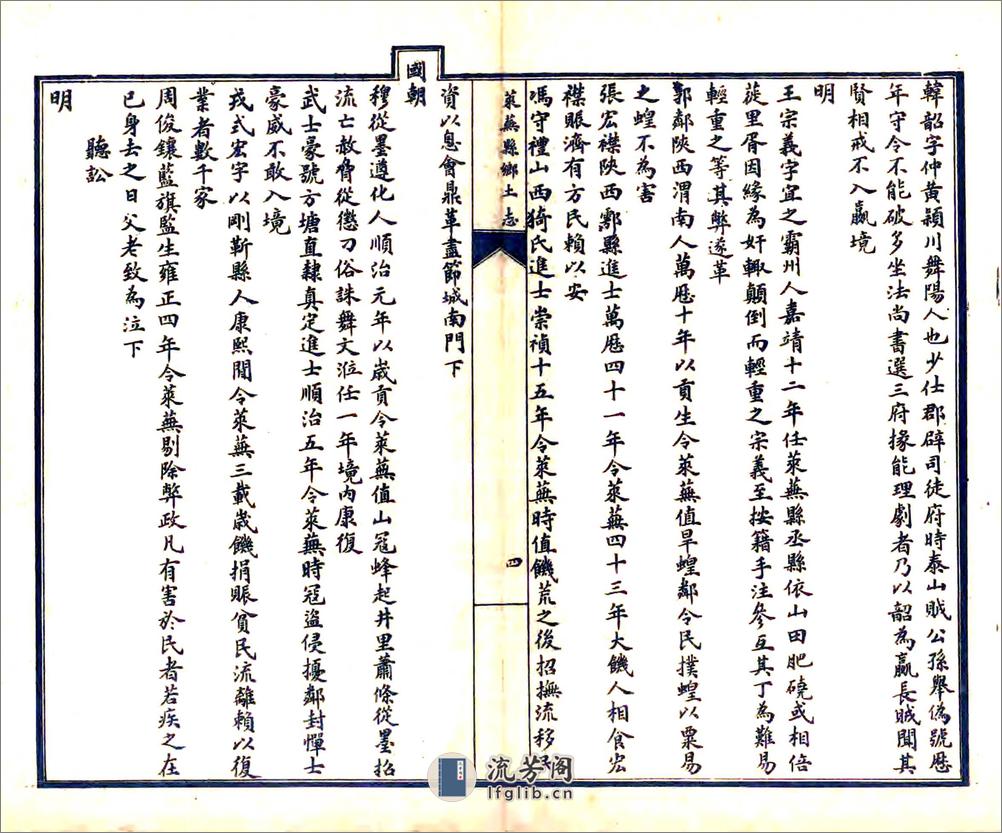 韓韶字仲黃潁川舞陽人也少仕郡辟司徒府時泰山賊公孫舉偽號歷
年守令不能破多坐法尚書選三府掾能理劇者乃以韶為嬴長賊聞其
賢相戒不入嬴境
明
王宗義字宜之霸州人嘉靖十二年任萊蕪縣丞縣依山田肥磽或相倍
蓰里胥因緣為奸輒顛倒而輕重之宗義至按籍手注參互其丁為難易
輕重之等其弊遂革
郭鄰陝西渭南人萬歷十年以貢生令萊蕪值旱蝗鄰令民撲蝗以粟易
之蝗不為害
張宏襟陝西鄠縣進士萬歷四十一年令萊蕪四十三年大饑人相食宏
襟賑濟有方民賴以安
馮守禮山西猗氏進士崇禎十五年令萊蕪時值饑荒之後招撫流移
萊蕪縣鄉土志
四
資以息會鼎革盡節城南門下
國朝
穆從墨遵化人順治元年以歲貢令萊蕪值山寇蜂起井里蕭條從墨招
流亡赦脅從懲刁俗誅舞文涖任一年境內康復
武士豪號方塘直隸真定進士順治五年令萊蕪時寇盜侵擾鄰封憚士
豪威不敢入境
戎式宏字以剛靳縣人康熙閒令萊蕪三載歲饑捐賑貧民流離賴以復
業者數千家
周俊鑲藍旗監生雍正四年令萊蕪剔除弊政凡有害於民者若疾之在
已身去之日父老致為泣下
聽訟
明
流芳阁
lfglib.cn